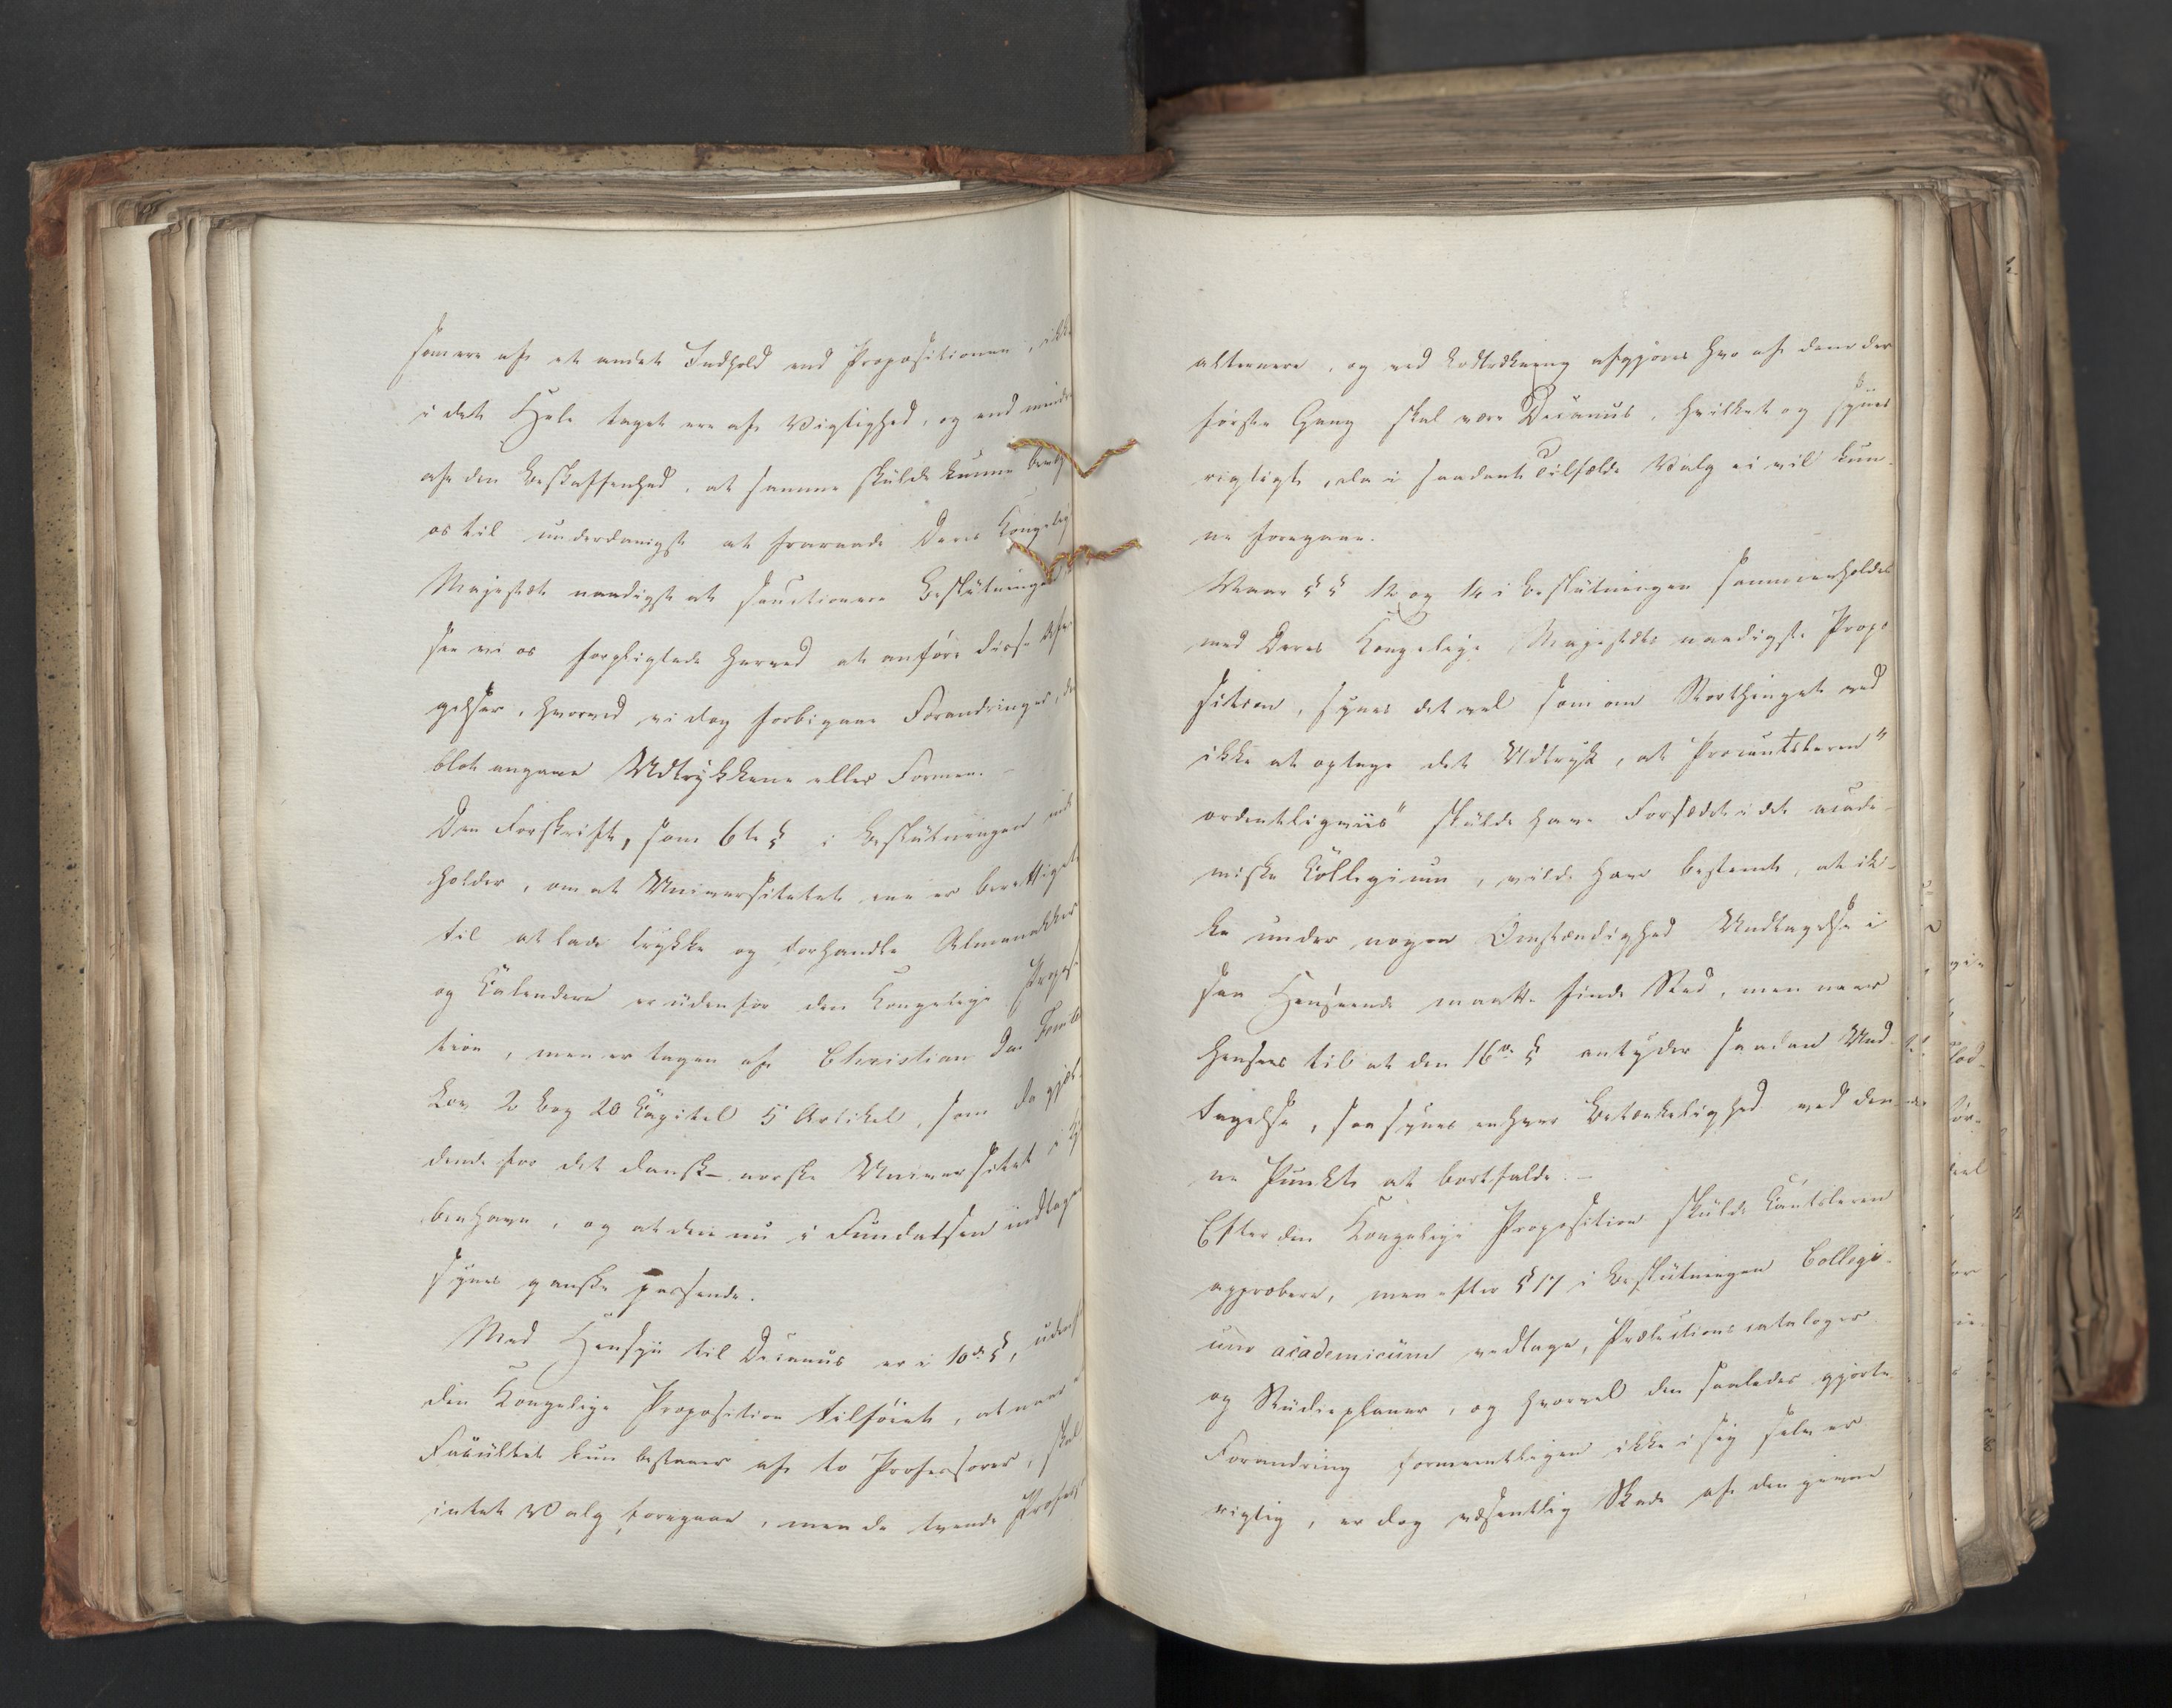 som ere af et andet Indhold end Propositionen, ikke
i det Hele taget ere af Vigtighed, og end mindre
af den Beskaffenhed, at samme skulde kunne bevæ
os til underdanigst at fraraade Deres Kongelig
Majestæt naadigst at sanctionere Beslutningen
see vi os forpligtede herved at anføre disse Afvi
gelser, hvorved vi dog forbigaae Forandringer, der
blot angaae Udtrykkene eller Formen. –
Den Forskrift, som 6te § i Beslutningen inde
holder, om at Universitetet ene er berettiget
til at lade trykke og forhandle Almanakker
og Kalendere er udenfor den Kongelige Proposi
tion, men er tagen af Christian den Femtes
Lov 2 Bog 20 Kapitel 5 Artikel, som da gjæl
dende for det dansk-norske Universitet i Kjø
benhavn, og at den nu i Fundatsen indtages
synes ganske passende.
Med Hensyn til Decanus er i 10de §, udenfor
den Kongelige Proposition tilføiet, at naar et
Facultet kun bestaaer af to Professorer, skal
intet Valg foregaae, men de tvende Profess
alternere, og ved Lodtrækning afgjøres hvo af dem der
første Gang skal være Decanus, hvilket og synes
rigtigt, da i saadant Tilfælde Valg ei vil kun-
ne foregaae.
Naar §§ 12 og 14 i Beslutningen sammenholdes
med Deres Kongelige Majestæts naadigste Propo
sition, synes det vel som om Storthinget ved
ikke at optage det Udtryk, at Procantsleren "
ordentligviis" skulde have Forsædet i det acade-
miske Kollegium, vilde have bestemt, at ik-
ke under nogen Omstændighed Undtagelse i
saa Henseende maatte finde Sted, men naar
hensees til at den 16de § antyder saadan Und-
tagelse, saa synes enhver Betænkelighed ved den-
ne Punkt at bortfalde. –
Efter den Kongelige Proposition skulde Cantsleren
approbere, men efter § 17 i Beslutningen Collegi-
um academicum vedtage, Prælectionscataloger
og Studieplaner, og hvorvel den saaledes gjorte
Forandring formeentligen ikke i sig selv er
rigtig, er dog væsentlig Skade af den givne